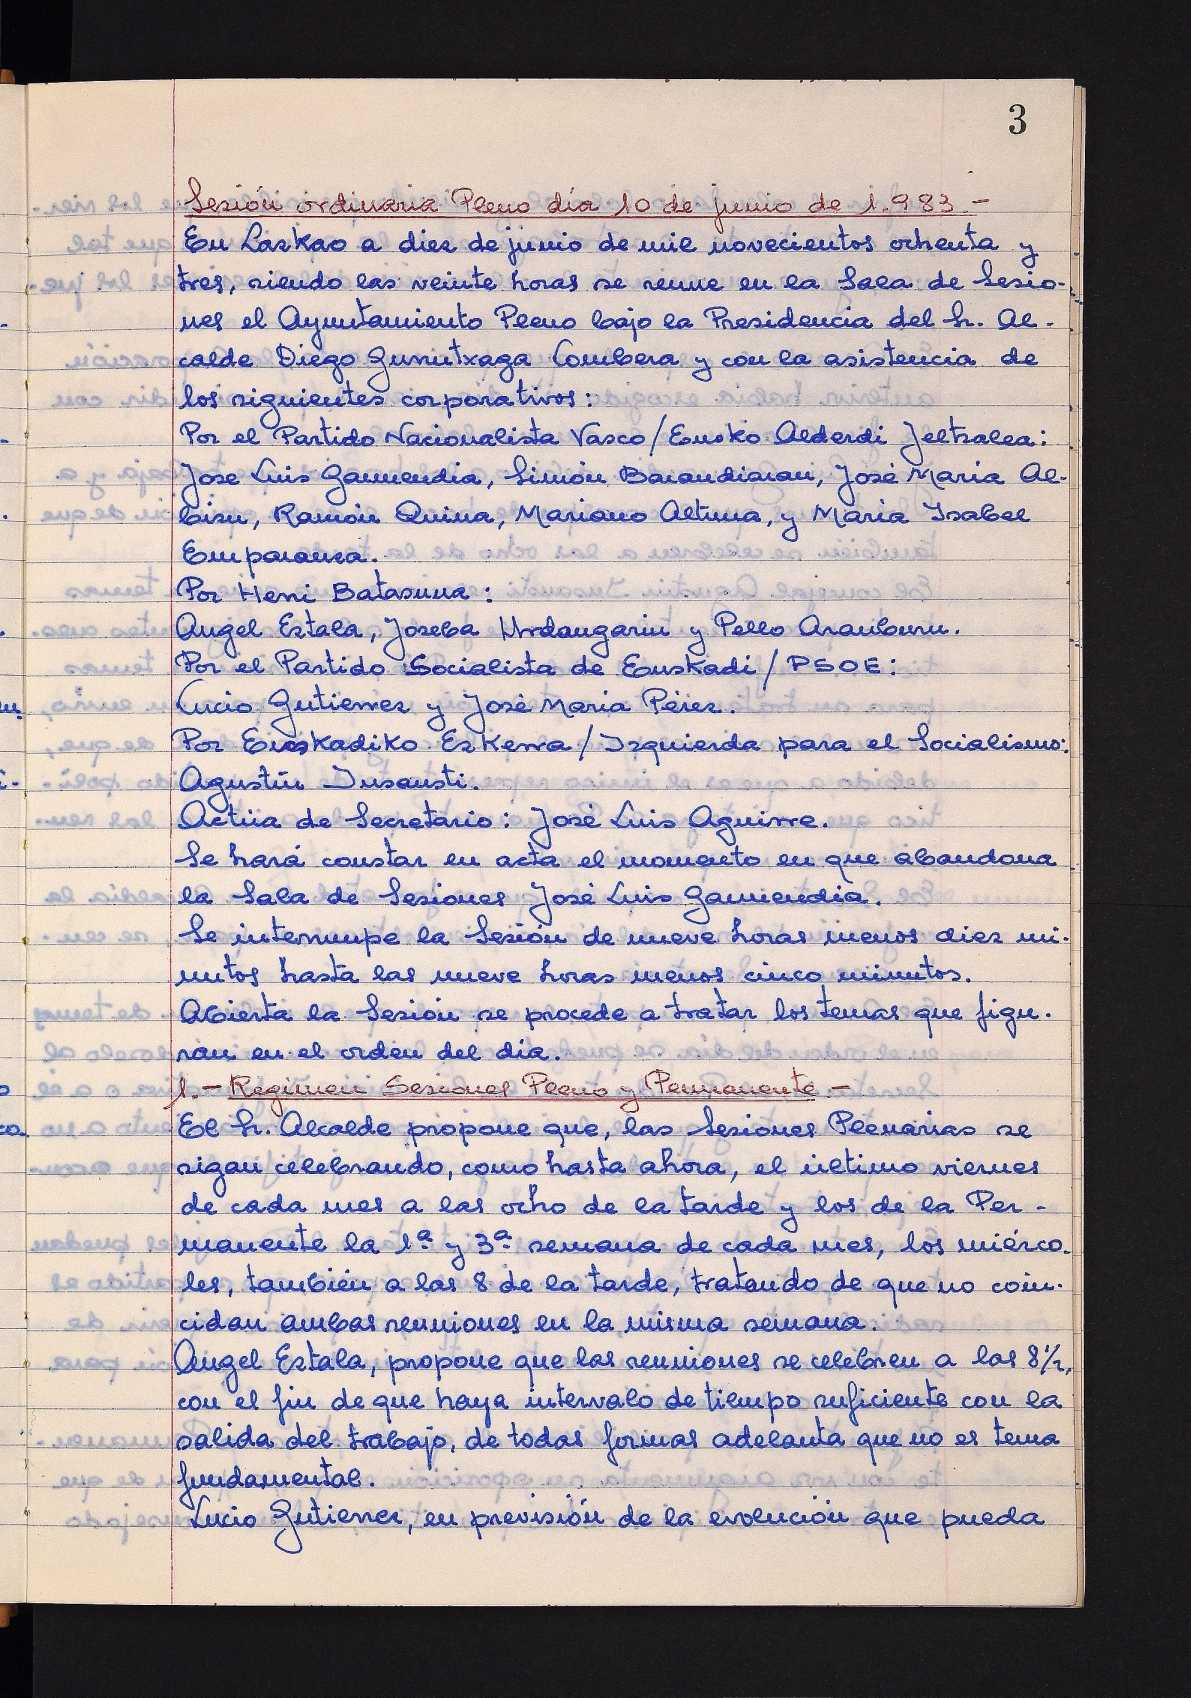 3
Sesión ordinaria Pleno día 10 de junio de 1.983.-
En Lazkao a diez de junio de mil novecientos ochenta y
tres, siendo las veinte horas se reune en la Sala de Sesio-
nes el Ayuntamiento Pleno bajo la Presidencia del Sr. Al-
calde Diego Gurrutxaga Combera y con la asistencia de
los siguientes corporativos:
Por el Partido Nacionalista Vasco/Eusko Alderdi Jeltzalea:
José Luis Garmendia, Simón Barandiaran, José Maria Al-
bisu, Ramón Quina, Mariano Altuna, y Maria Isabel
Emparanza.
Por Herri Batasuna:
Angel Estala, Joseba Urdangarin y Pello Aranburu.
Por el Partido Socialista de Euskadi/PSOE:
Lucio Gutierrez y José Maria Pérez.
Por Euskadiko Ezkerra/Izquierda para el Socialismo:
Agustín Insausti.
Actúa de Secretario: José Luis Aguirre.
Se hará constar en acta el momento en que abandona
la Sala de Sesiones José Luis Garmendia.
Se interrumpe la Sesión de nueve horas menos diez mi-
nutos hasta las nueve horas menos cinco minutos.
Abierta la Sesión se procede a tratar los temas que figu-
ran en el orden del día.
1.- Regimen Sesiones Pleno y Permanente.-
El Sr. Alcalde propone que, las Sesiones Plenarias se
sigan celebrando, como hasta ahora, el último viernes
de cada mes a las ocho de la tarde y los de la Per-
manente la 1ª y 3ª semana de cada mes, los miérco-
les, también a las 8 de la tarde, tratando de que no coin-
cidan ambas reuniones en la misma semana.
Angel Estala, propone que las reuniones se celebren a las 8½,
con el fin de que haya intervalo de tiempo suficiente con la
salida del trabajo, de todas formas adelanta que no es tema
fundamental.
Lucio Gutierrez, en previsión de la evolución que pueda